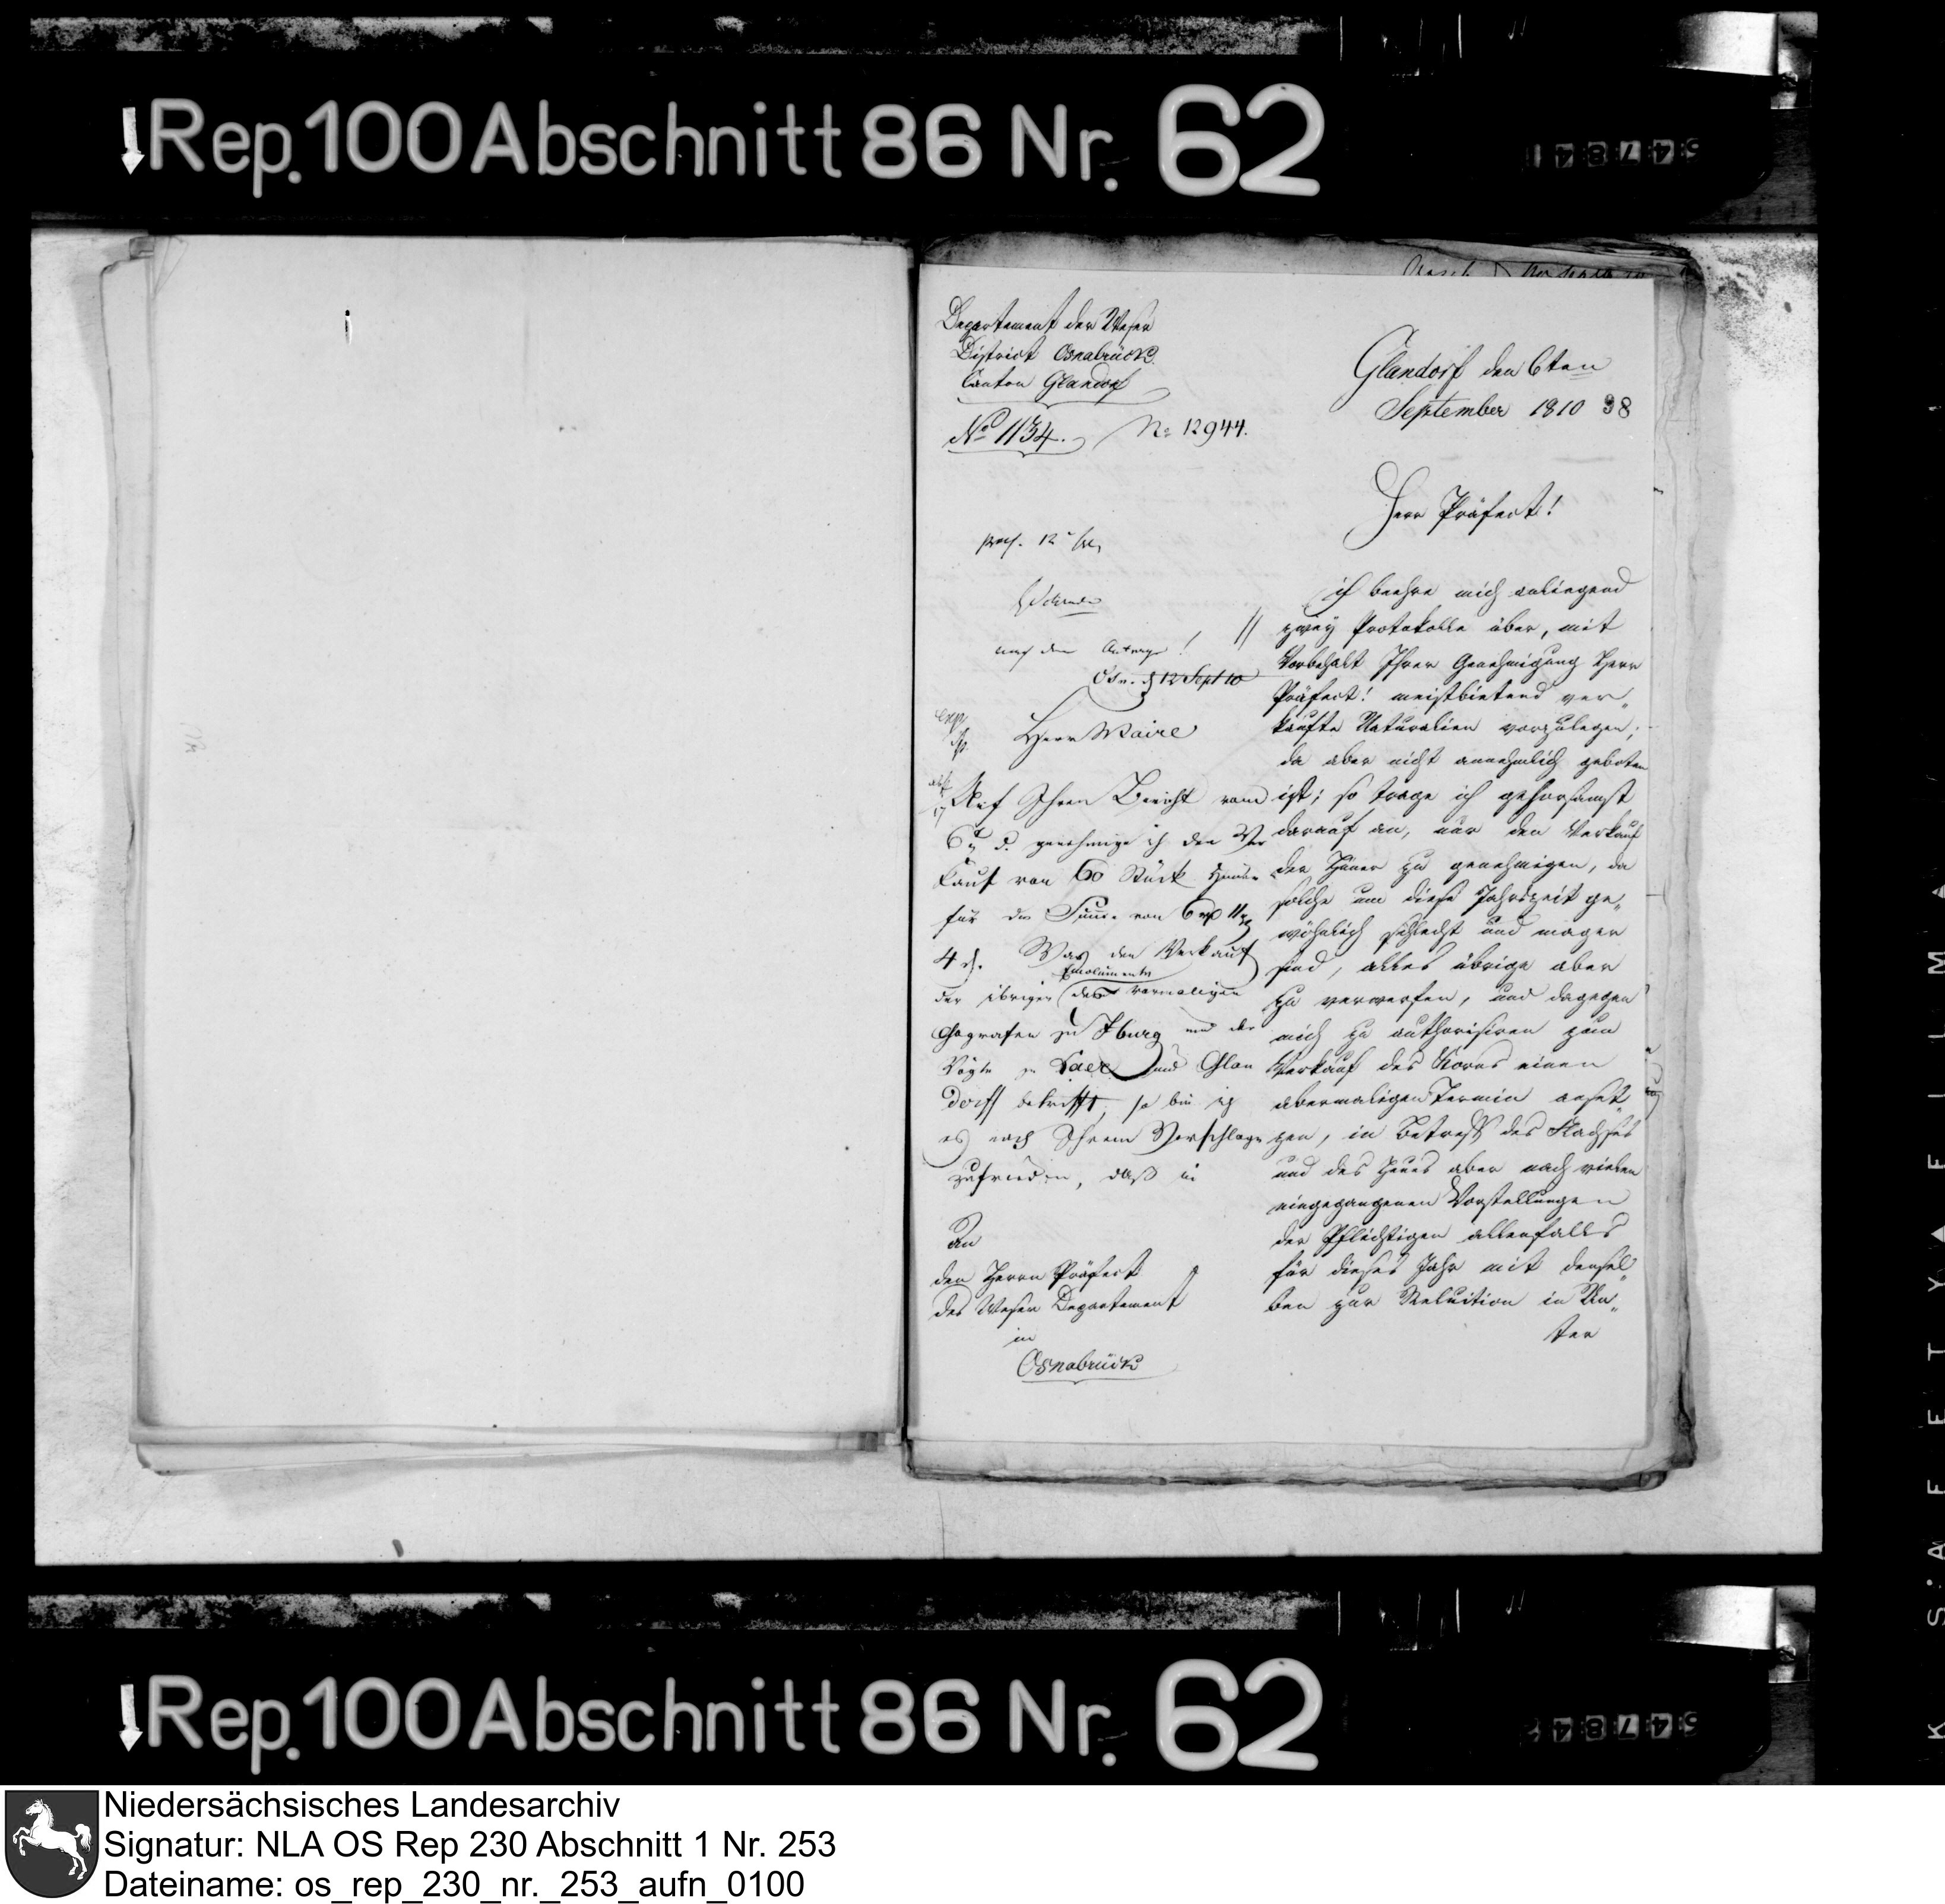 Rep. 100 Abschnitt 86 Nr. 62
54784
Departement der Weser
District Osnabrück
Canton Glandorf
No 1134.
No 12944.
Glandorf den 6ten
September 1810
38
Herr Präfect!
ich beehre mich anliegend
zwey Protokolle über, mit
Vorbehalt Ihrer Genehmigung Herr
Präfect! meistbietend ver„
kaufte Naturalien vorzulegen;
da aber nicht annehmlich geboten
ist; so trage ich gehorsamst
darauf an, nur den Verkauf
der Hüner zu genehmigen, da
solche um diese Jahrszeit ge„
wöhnlich schlecht und mager
sind, alles übrige aber
zu verwerfen, und dagegen
mich zu authorisiren zum
Verkauf des Korns einen
abermaligen Termin anset„
zen, in Betreff des Flachses
und des Heues aber nach vielen
eingegangenen Vorstellungen
der Pflichtigen allenfalls
für dieses Jahr mit densel„
ben zur Reluition in Un„
ter
praes. 12
nach dem Antrage!
Osn. d 12 Sept 10
exp
Herr Maire
Auf Ihren Bericht vom
6t d. genehmige ich den Ver
kauf von 60 Stück Hüner
für die Summe von 6 rp 11
4 d. Was den Verkauf
der übrigen Emolumente des vormaligen
Gografen zu Iburg und der
Vögte zu Laer und Glan
dorff betrifft, so bin ich
es nach Ihrem Vorschlage
zufrieden, daß in
An
den Herrn Präfect
des Weser Departement
in
Osnabrück
K SAFETY FILM
Rep. 100 Abschnitt 86 Nr. 62
54784
Niedersächsisches Landesarchiv
Signatur: NLA OS Rep 230 Abschnitt 1 Nr. 253
Dateiname: os_rep_230_nr._253_aufn_0100